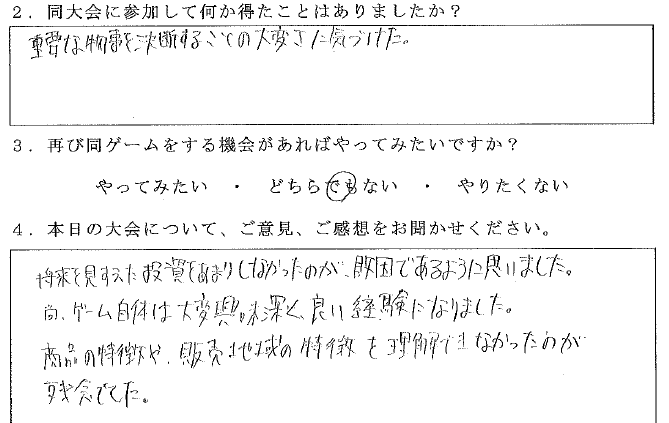 ２．同大会に参加して何か得たことはありましたか？
重要な物事を決断することの大変さに気づけた。
３．再び同ゲームをする機会があればやってみたいですか？
やってみたい ・ どちらでもない ・ やりたくない
４．本日の大会について、ご意見、ご感想をお聞かせください。
将来を見すえた投資をあまりしなかったのが、敗因であるように思いました。
尚、ゲーム自体は大変興味深く、良い経験になりました。
商品の特徴や、販売地域の特徴を理解できなかったのが
残念でした。